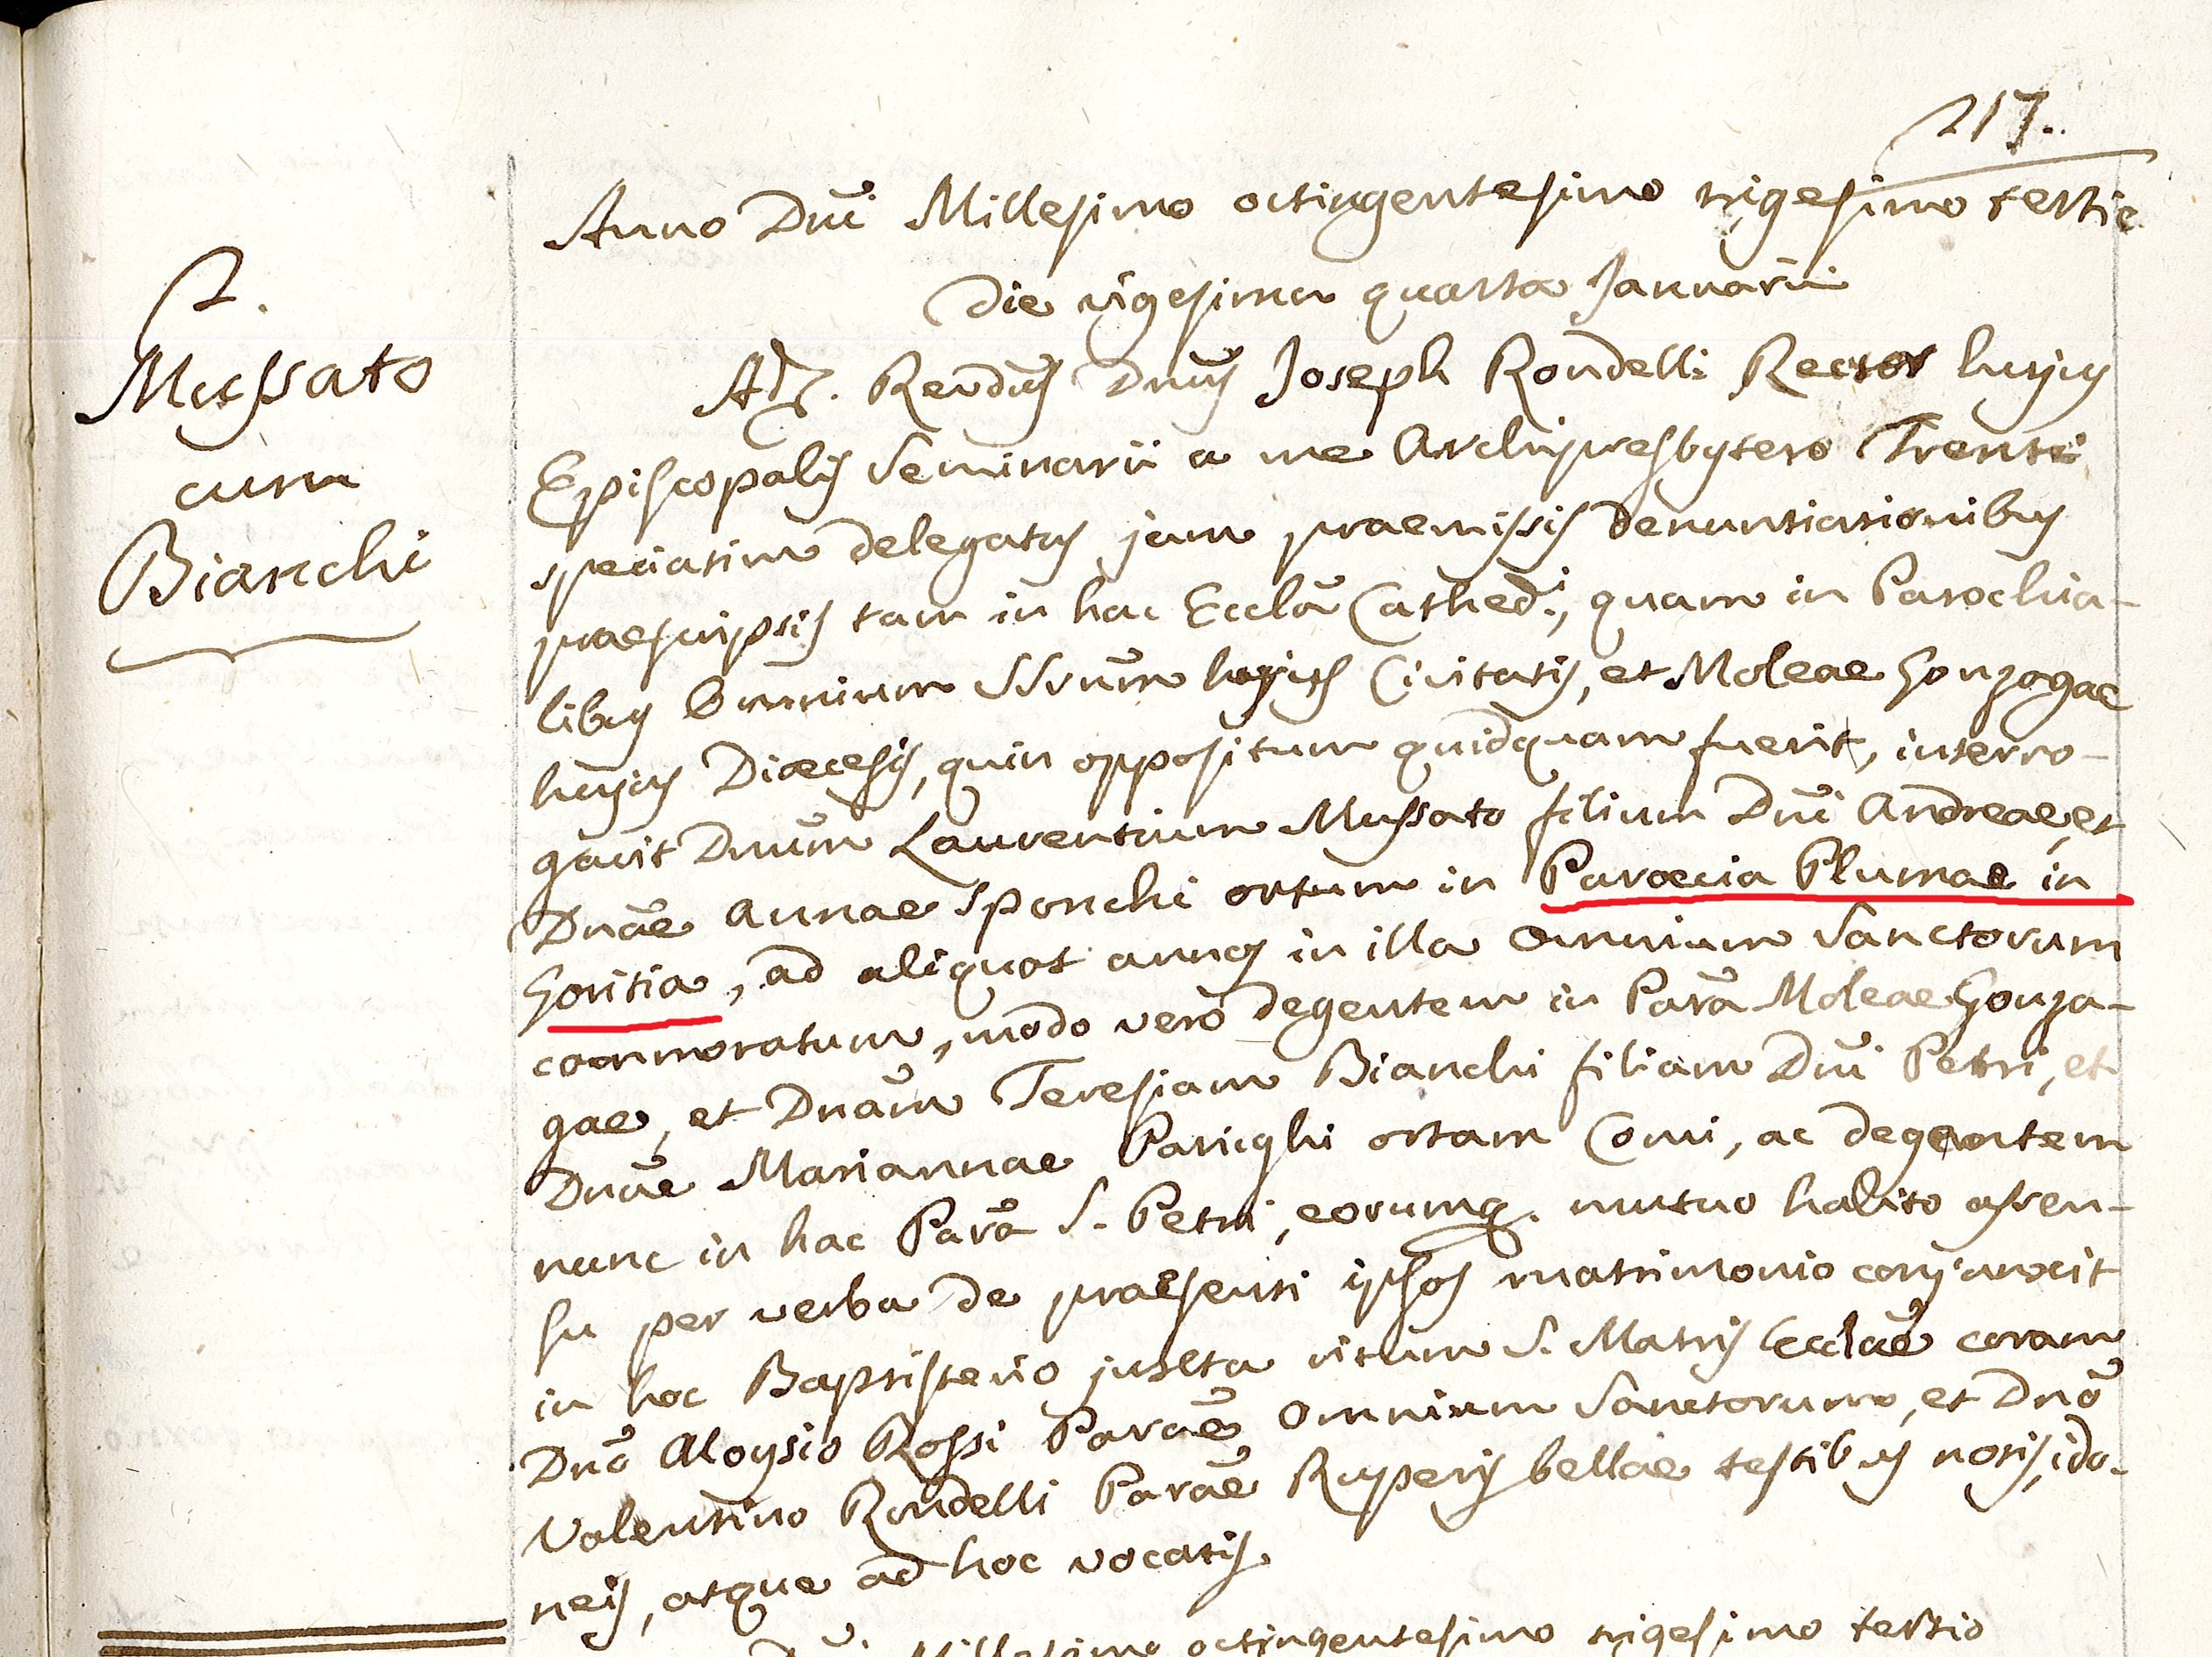 217.
Anno Dni Millesimo octingentesimo trigesimo tertio
die vigesima quarta Januarii
2.
Mussato
cum
Bianchi
Adm. Rendus Dnus Joseph Rondelli Rector hujus
Episcopalis Seminarii a me Archipresbytero Trenti
speciatim delegatus jam praemissis denuntiationibus
praescriptis tam in hac Eccla Cathedi, quam in Parochia-
libus Omnium SSrum hujus Civitatis, et Moleae Gonzagae
hujus Diœcesis, quin oppositum quidquam fuerit, interro-
gavit Dnum Laurentium Mussato filium Dni Andreae, et
Dnae Annae Sponchi ortum in Paroecia Plumae in
Goritia, ad aliquot annos in illa Omnium Sanctorum
commoratum, modo vero degentem in Para Moleae Gonza-
gae, et Dnam Teresiam Bianchi filiam Dni Petri, et
Dnae Mariannae Parieghi ortam Comi, ac degentem
nunc in hac Para S. Petri, eorumq. mutuo habito assen-
su per verba de praesenti ipsos matrimonio conjunxit
in hoc Baptisterio juxta ritum S. Matris Ecclae coram
Dno Aloysio Rossi Parae Omnium Sanctorum, et Dno
Valentino Rondelli Parae Ruperis bellae testibus notis, ido-
neis, atque ad hoc vocatis.
Dni Millesimo octingentesimo trigesimo tertio